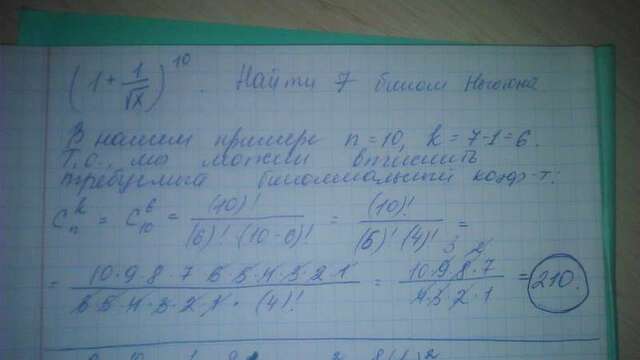 (1 + 1/√x)^10. Найти 7 бином Ньютона
В нашем примере n = 10, k = 7-1 = 6.
Т.о., мы можем вычислить
требуемый биномиальный коэф-т:
C_n^k = C_10^6 = (10)! / (6)! · (10-6)! = (10)! / (6)! (4)! =
= 10·9·8·7·6·5·4·3·2·1 / 6·5·4·3·2·1·(4)! = 10·9·8·7 / 4·3·2·1 = 210.